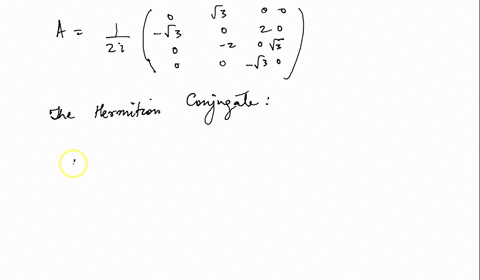 A = 1/2i ( 0 √3 0 0
-√3 0 2 0
0 -2 0 √3
0 0 -√3 0 )
The Hermition Conjugate: